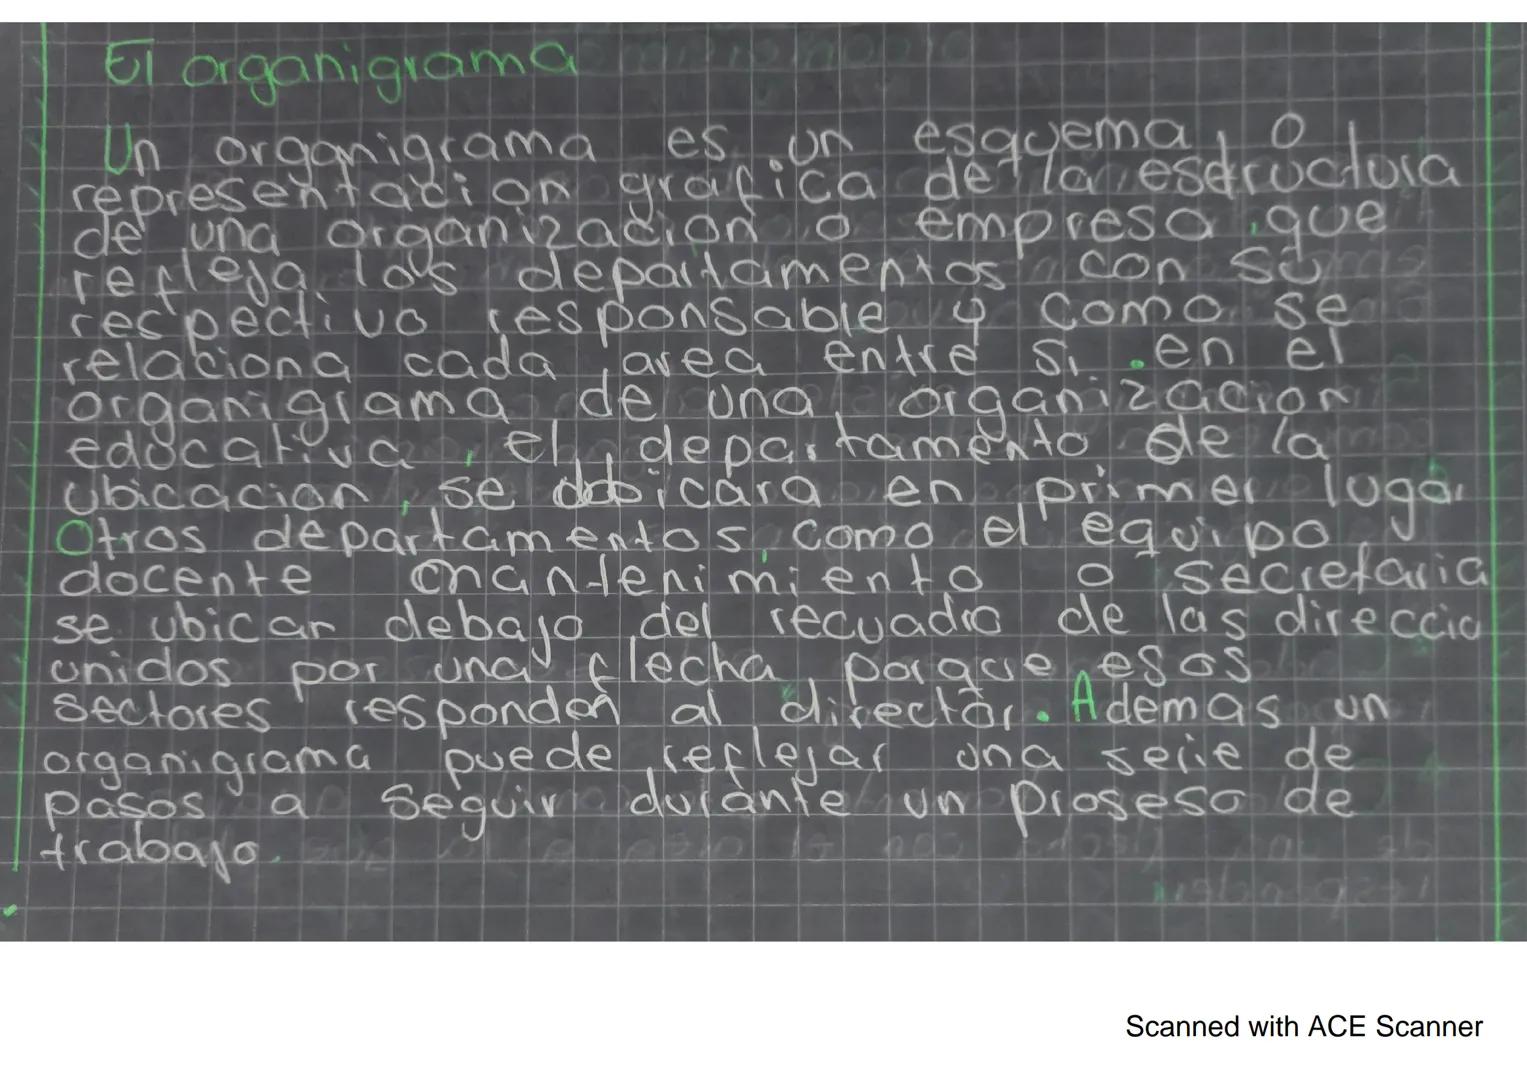 El organigrama
Un organigrama es un esquema o
representacion grafica de la esdructura
de una organizacion o empresa, que
refleja los departamentos con su
respectivo responsable y como se
relaciona cada area entre si. en el
organigrama de una organizacion
educativa, el departamento de la
ubicacion, se ubicara en primer lugar
Otros departamentos, como el equipo
docente mantenimiento o secretaria
se ubican debajo del recuadro de las direccio
unidos por una flecha, porque esos
sectores responden al director. Ademas un
organigrama puede reflejar una serie de
pasos a seguir durante un proseso de
trabajo.
Scanned with ACE Scanner